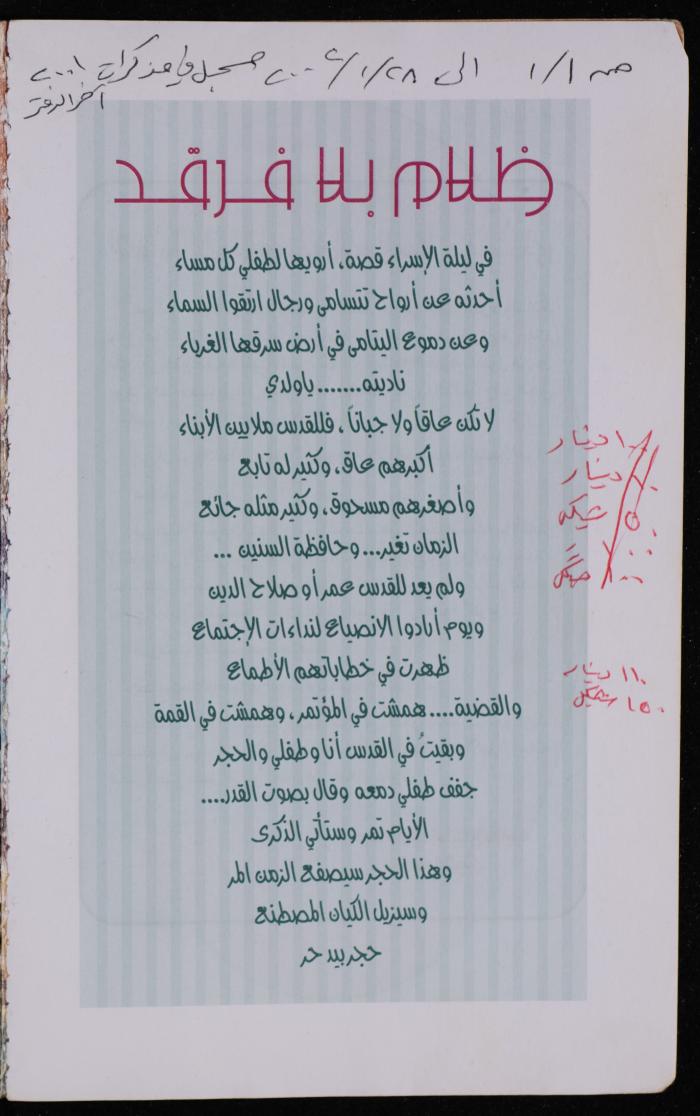 من ١/١ الى ٢٨/١/٢٠٠٢ مسجل في مذكرات ٢٠٠١
آخر الدفتر
ظلام بلا فرقد
في ليلة الإسراء قصة، أرويها لطفلي كل مساء
أحدثه عن أرواح تتسامى ورجال ارتقوا السماء
وعن دموع اليتامى في أرض سرقها الغرباء
ناديته....... ياولدي
لا تكن عاقاً ولا جباناً ، فللقدس ملايين الأبناء
أكبرهم عاق، وكثير له تابع
وأصغرهم مسحوق، وكثير مثله جائع
الزمان تغير... وحافظة السنين ...
ولم يعد للقدس عمر أو صلاح الدين
ويوم أرادوا الانصياع لنداءات الإجتماع
ظهرت في خطاباتهم الأطماع
والقضية.... همشت في المؤتمر ، وهمشت في القمة
وبقيتُ في القدس أنا وطفلي والحجر
جفف طفلي دمعه وقال بصوت القدر....
الأيام تمر وستأتي الذكرى
وهذا الحجر سيصفع الزمن المر
وسيزيل الكيان المصطنع
حجر بيد حر
١٠ دينار
دينار
٥٠ شيكل
١٠٠ شيكل
١١٠ دينار
١٥٠ شيكل